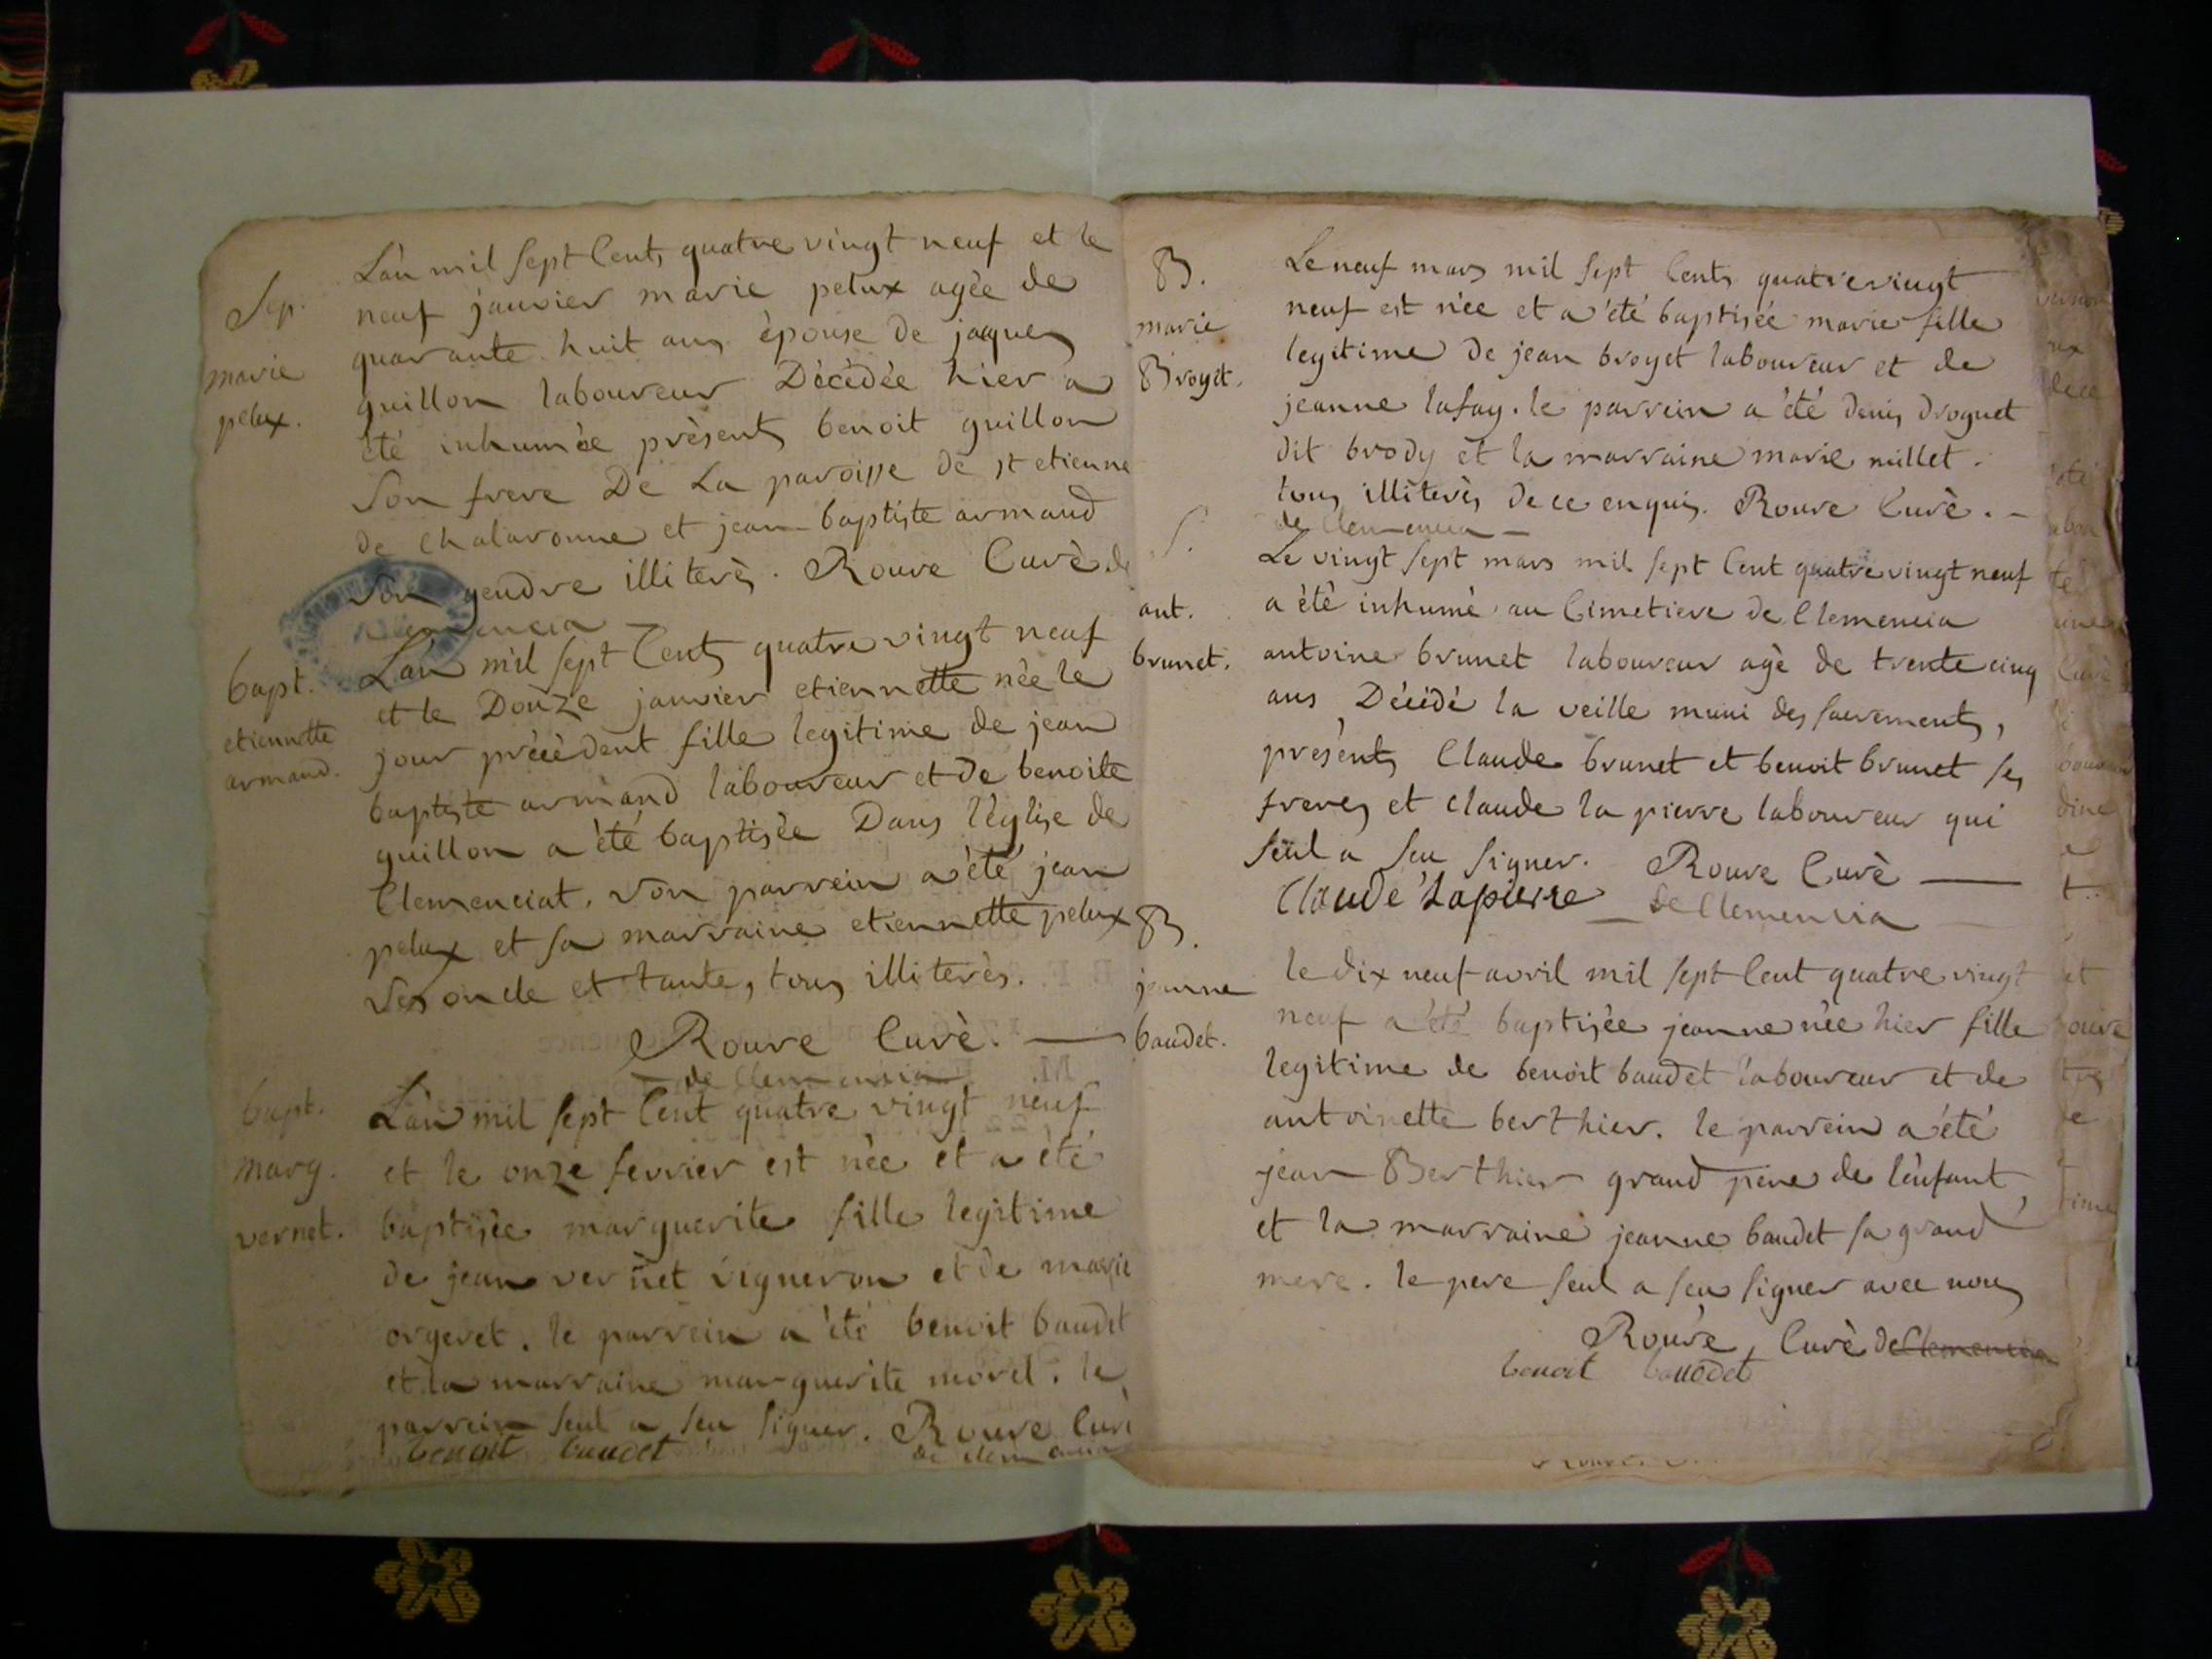 Sep.
marie
pelux.
L'an mil sept Cents quatre vingt neuf et le
neuf janvier marie pelux agèe de
quarante huit ans èpouse de jaques
guillon laboureur Dècèdèe hier a
èté inhumèe prèsents benoit guillon
Son frere De La paroisse de st etienne
de chalaronne et jean-baptiste armand
Son gendre illiterès. Rouve Curè de
Clemencia
bapt.
etiennette
armand.
L'an mil sept Cents quatre vingt neuf
et le Douze janvier etiennette nèe le
jour prècèdent fille legitime de jean
baptiste armand laboureur et de benoite
guillon a èté baptisèe Dans l'èglise de
Clemenciat. Son parrein a èté jean
pelux et sa marraine etiennette pelux
Ses oncle et tante, tous illiterès.
Rouve Curè.
de Clemencia
bapt.
marg.
vernet.
L'an mil sept Cent quatre vingt neuf
et le onze fevrier est nèe et a èté
baptisèe marguerite fille legitime
de jean vernet vigneron et de marie
orgeret. le parrein a èté benoit baudet
et la marraine marguerite morel. le
parrein seul a seu signer. Rouve Curè
benoit baudet de clemencia
B.
marie
Broyet.
Le neuf mars mil sept Cents quatrevingt
neuf est nèe et a èté baptisèe marie fille
legitime de jean broyet laboureur et de
jeanne lafay. le parrein a èté denis droguet
dit brody et la marraine marie millet.
tous illiterès de ce enquis. Rouve Curè.
de Clemencia
S.
ant.
brunet.
Le vingt sept mars mil sept Cent quatre vingt neuf
a èté inhumè au Cimetiere de Clemencia
antoine brunet laboureur agè de trente cinq
ans Dècèdè la veille muni des sacrements,
prèsents Claude brunet et benoit brunet ses
freres et claude la pierre laboureur qui
seul a seu signer. Rouve Curè
Claude Lapierre de Clemencia
B.
jeanne
baudet.
le dix neuf avril mil sept Cent quatre vingt
neuf a èté baptisèe jeanne nèe hier fille
legitime de benoit baudet laboureur et de
antoinette berthier. le parrein a èté
jean Berthier grand pere de l'enfant,
et la marraine jeanne baudet sa grand
mere. le pere seul a seu signer avec nous
Rouve, Curè de Clemencia
benoit baudet